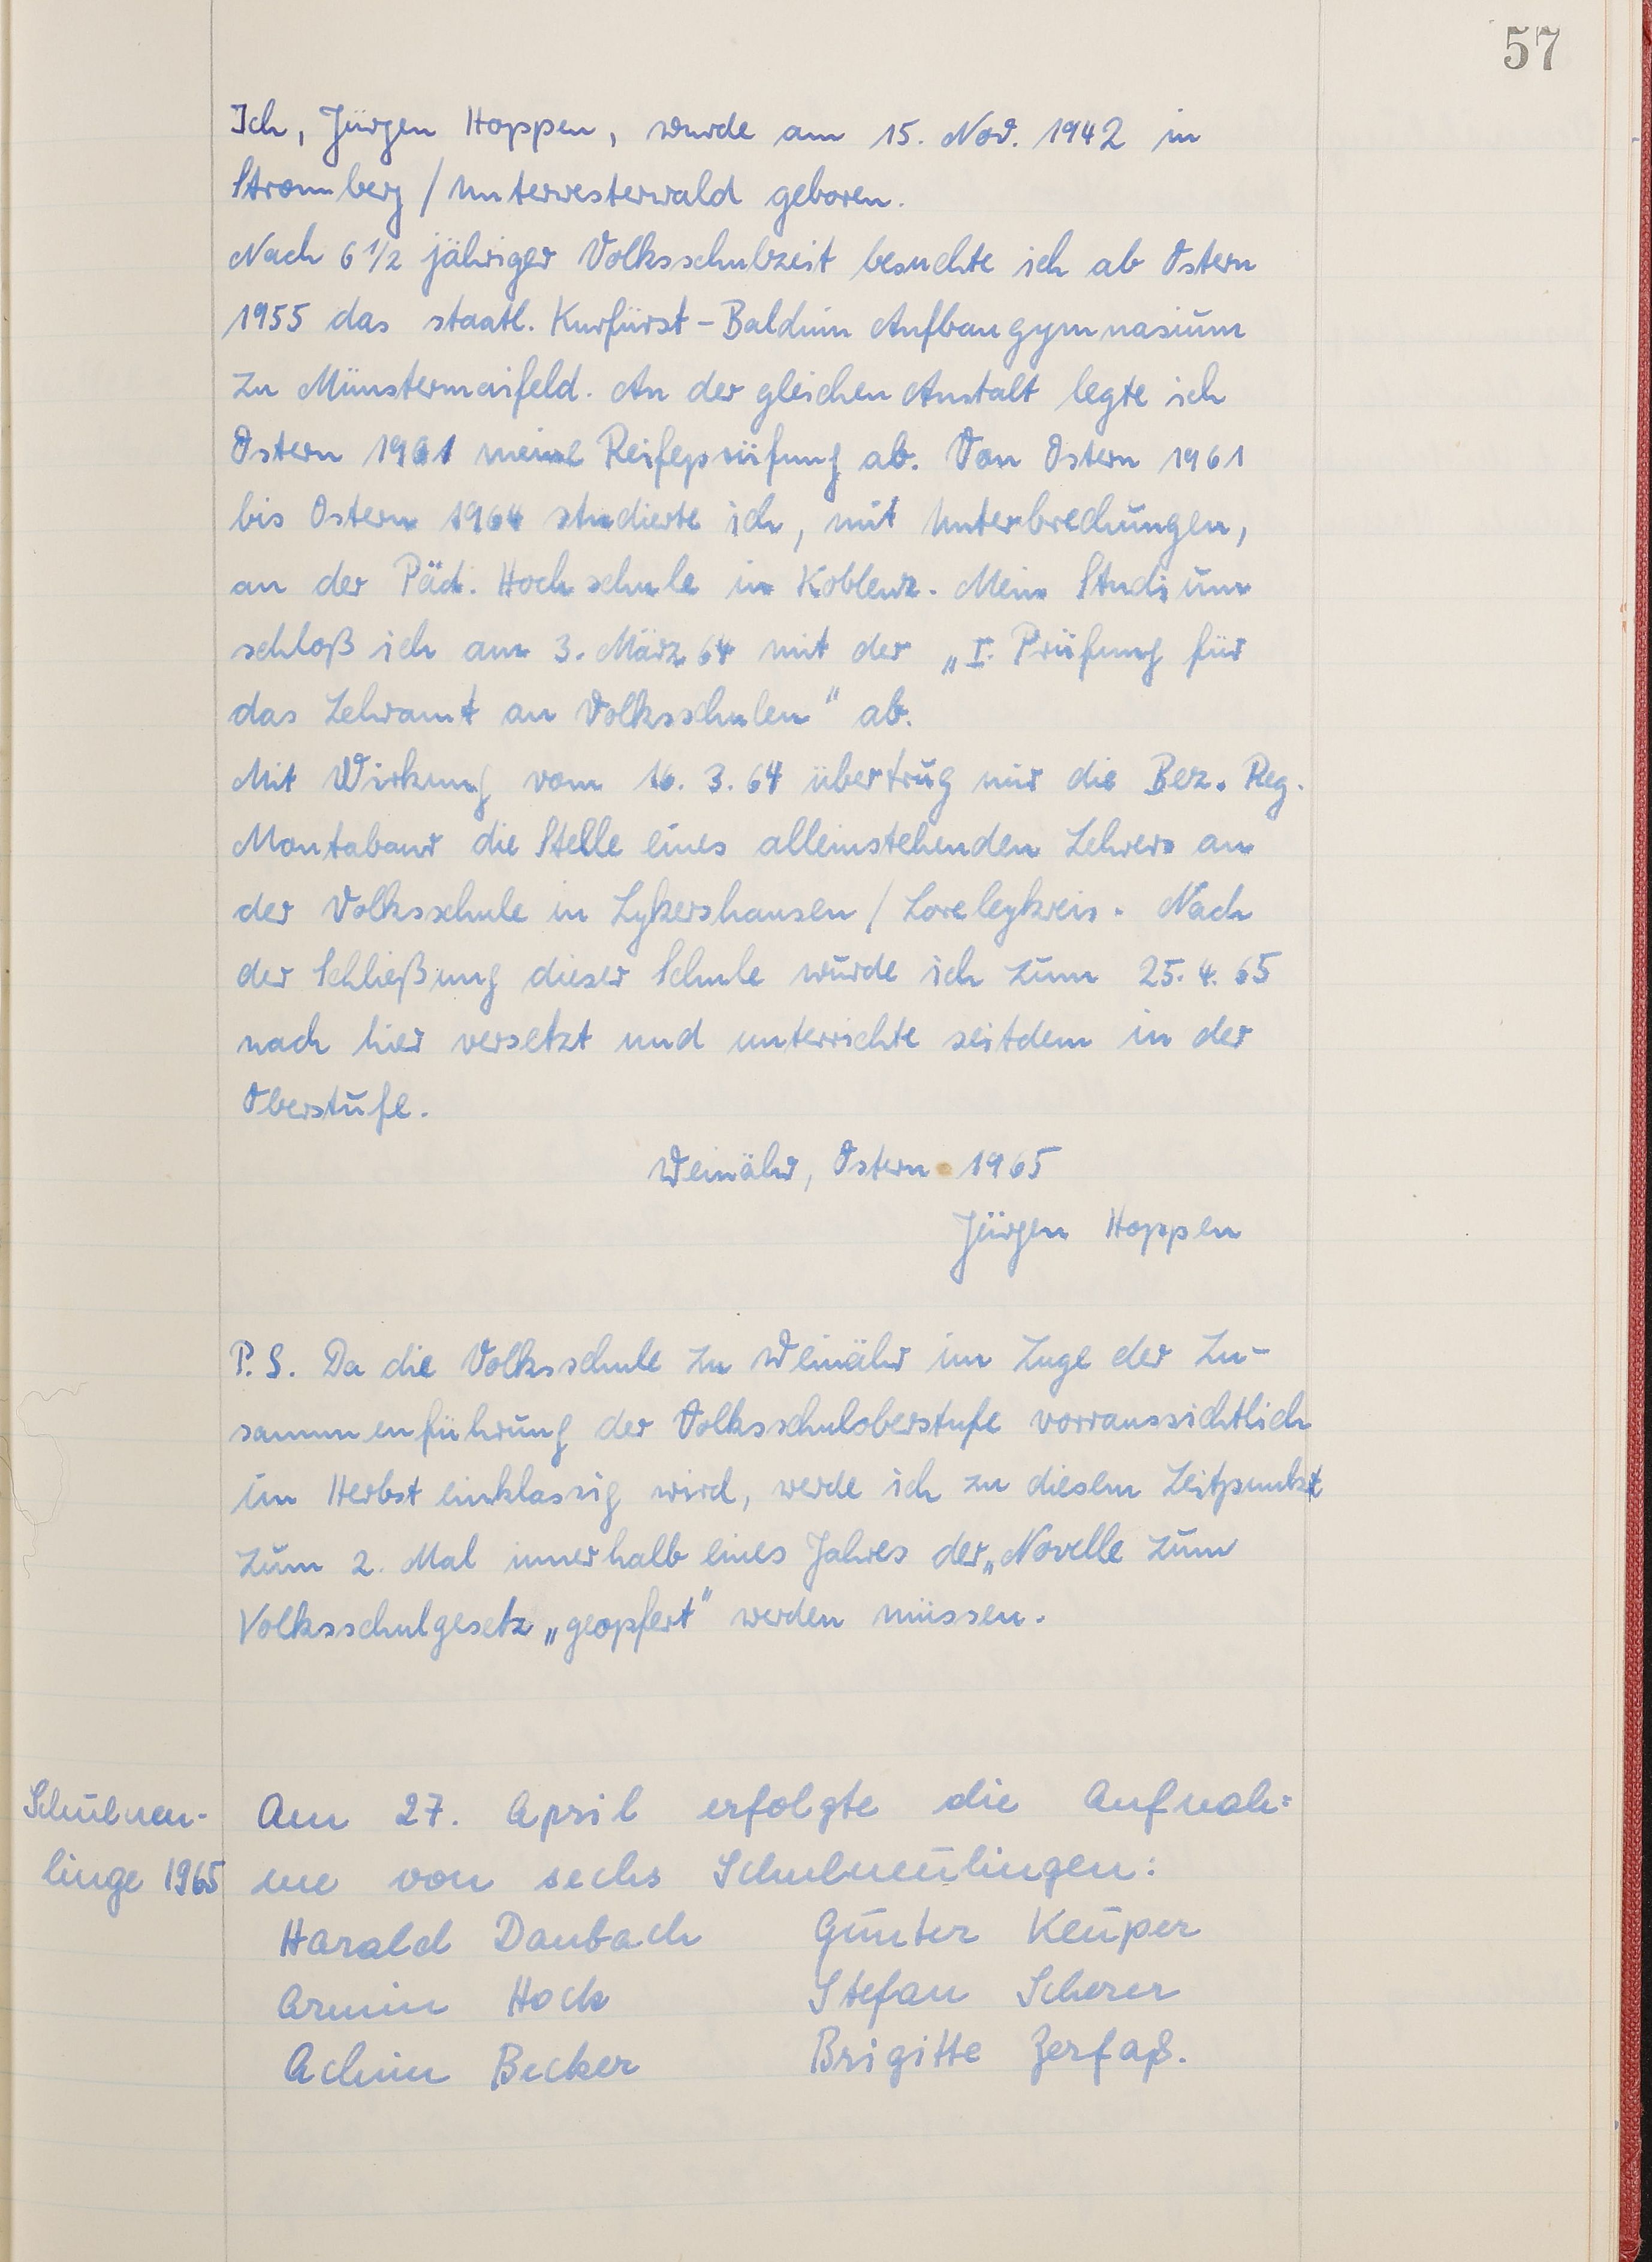 57
Ich, Jürgen Hoppen, wurde am 15. Nov. 1942 in
Stromberg / Unterwesterwald geboren.
Nach 6 1/2 jähriger Volksschulzeit besuchte ich ab Ostern
1955 das staatl. Kurfürst-Balduin Aufbaugymnasium
zu Münstermaifeld. An der gleichen Anstalt legte ich
Ostern 1961 meine Reifeprüfung ab. Von Ostern 1961
bis Ostern 1964 studierte ich, mit Unterbrechungen,
an der Päd. Hochschule in Koblenz. Mein Studium
schloß ich am 3. März 64 mit der „I. Prüfung für
das Lehramt an Volksschulen" ab.
Mit Wirkung vom 16. 3. 64 übertrug mir die Bez. Reg.
Montabaur die Stelle eines alleinstehenden Lehrers an
der Volksschule in Lykershausen / Loreleykreis. Nach
der Schließung dieser Schule wurde ich zum 25. 4. 65
nach hier versetzt und unterrichte seitdem in der
Oberstufe.
Weinähr, Ostern 1965
Jürgen Hoppen
P. S. Da die Volksschule zu Weinähr im Zuge der Zu-
sammenführung der Volksschuloberstufe vorraussichtlich
im Herbst einklassig wird, werde ich zu diesem Zeitpunkt
zum 2. Mal innerhalb eines Jahres der „Novelle zum
Volksschulgesetz „geopfert" werden müssen.
Schulneu-
linge 1965
Am 27. April erfolgte die Aufnah=
me von sechs Schulneulingen:
Harald Daubach Günter Keuper
Armin Hock Stefan Scherer
Achim Becker Brigitte Zerfaß.